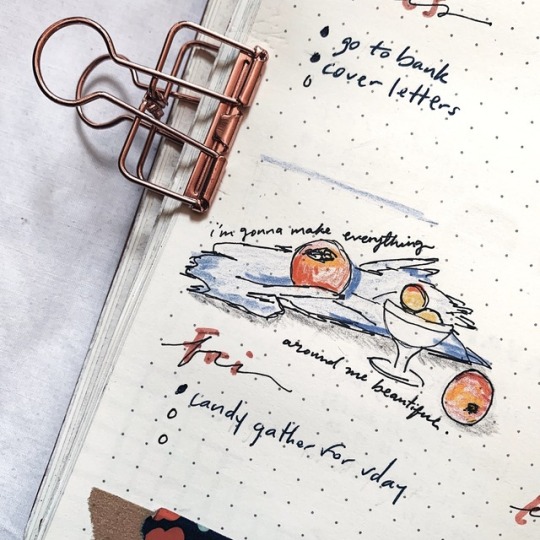 go to bank
cover letters
i'm gonna make everything
around me beautiful.
Fri
candy gather for vday